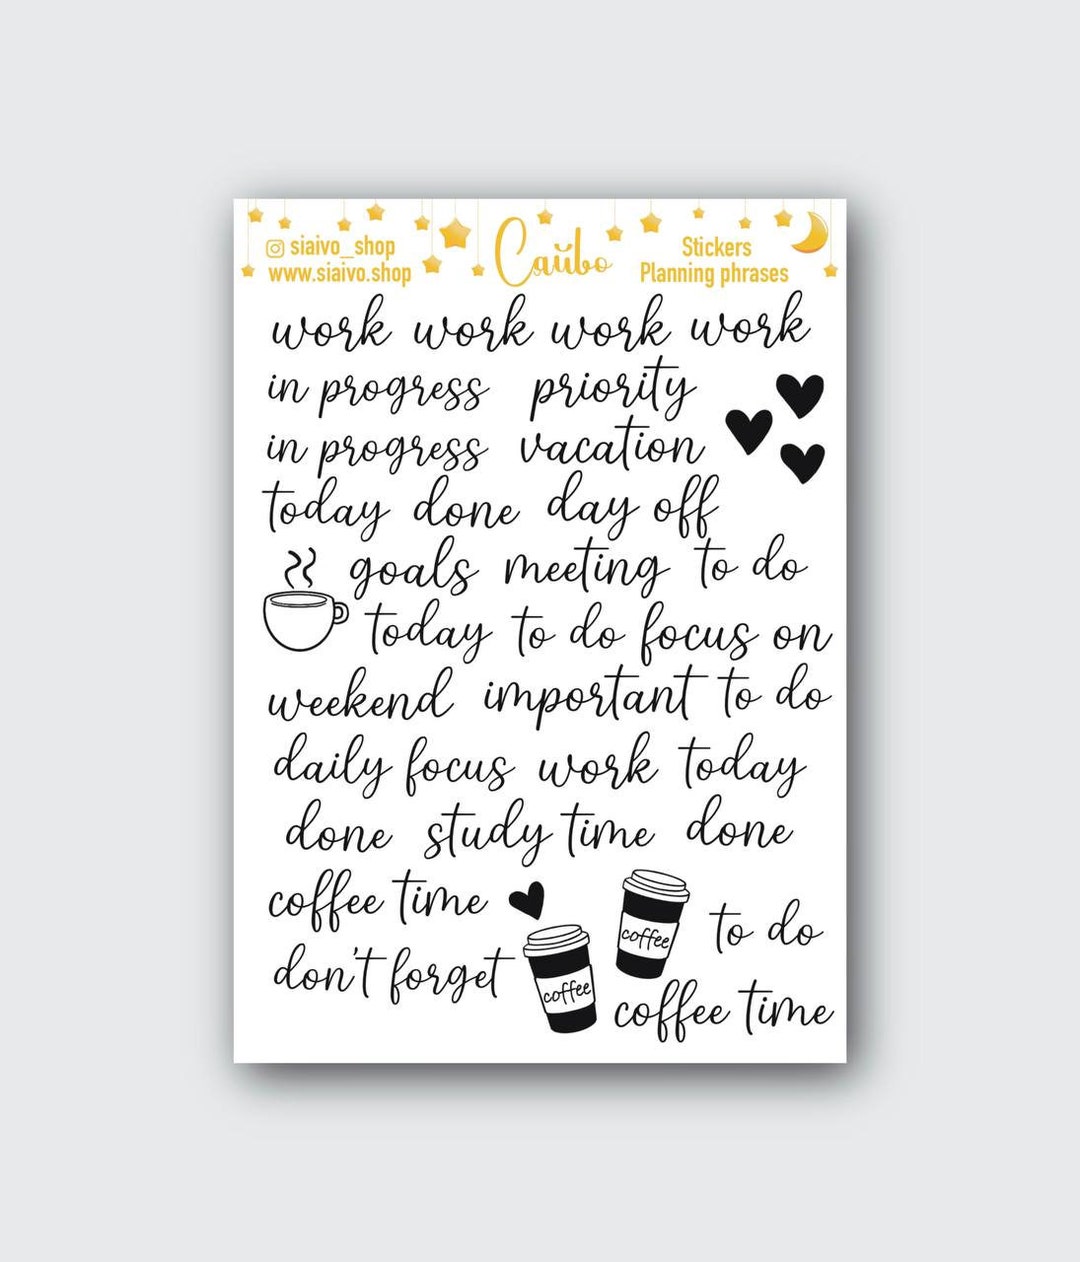 siaivo_shop
www.siaivo.shop
Сайво
Stickers
Planning phrases
work work work work
in progress priority
in progress vacation
today done day off
goals meeting to do
today to do focus on
weekend important to do
daily focus work today
done study time done
coffee time
coffee
to do
don't forget
coffee
coffee time